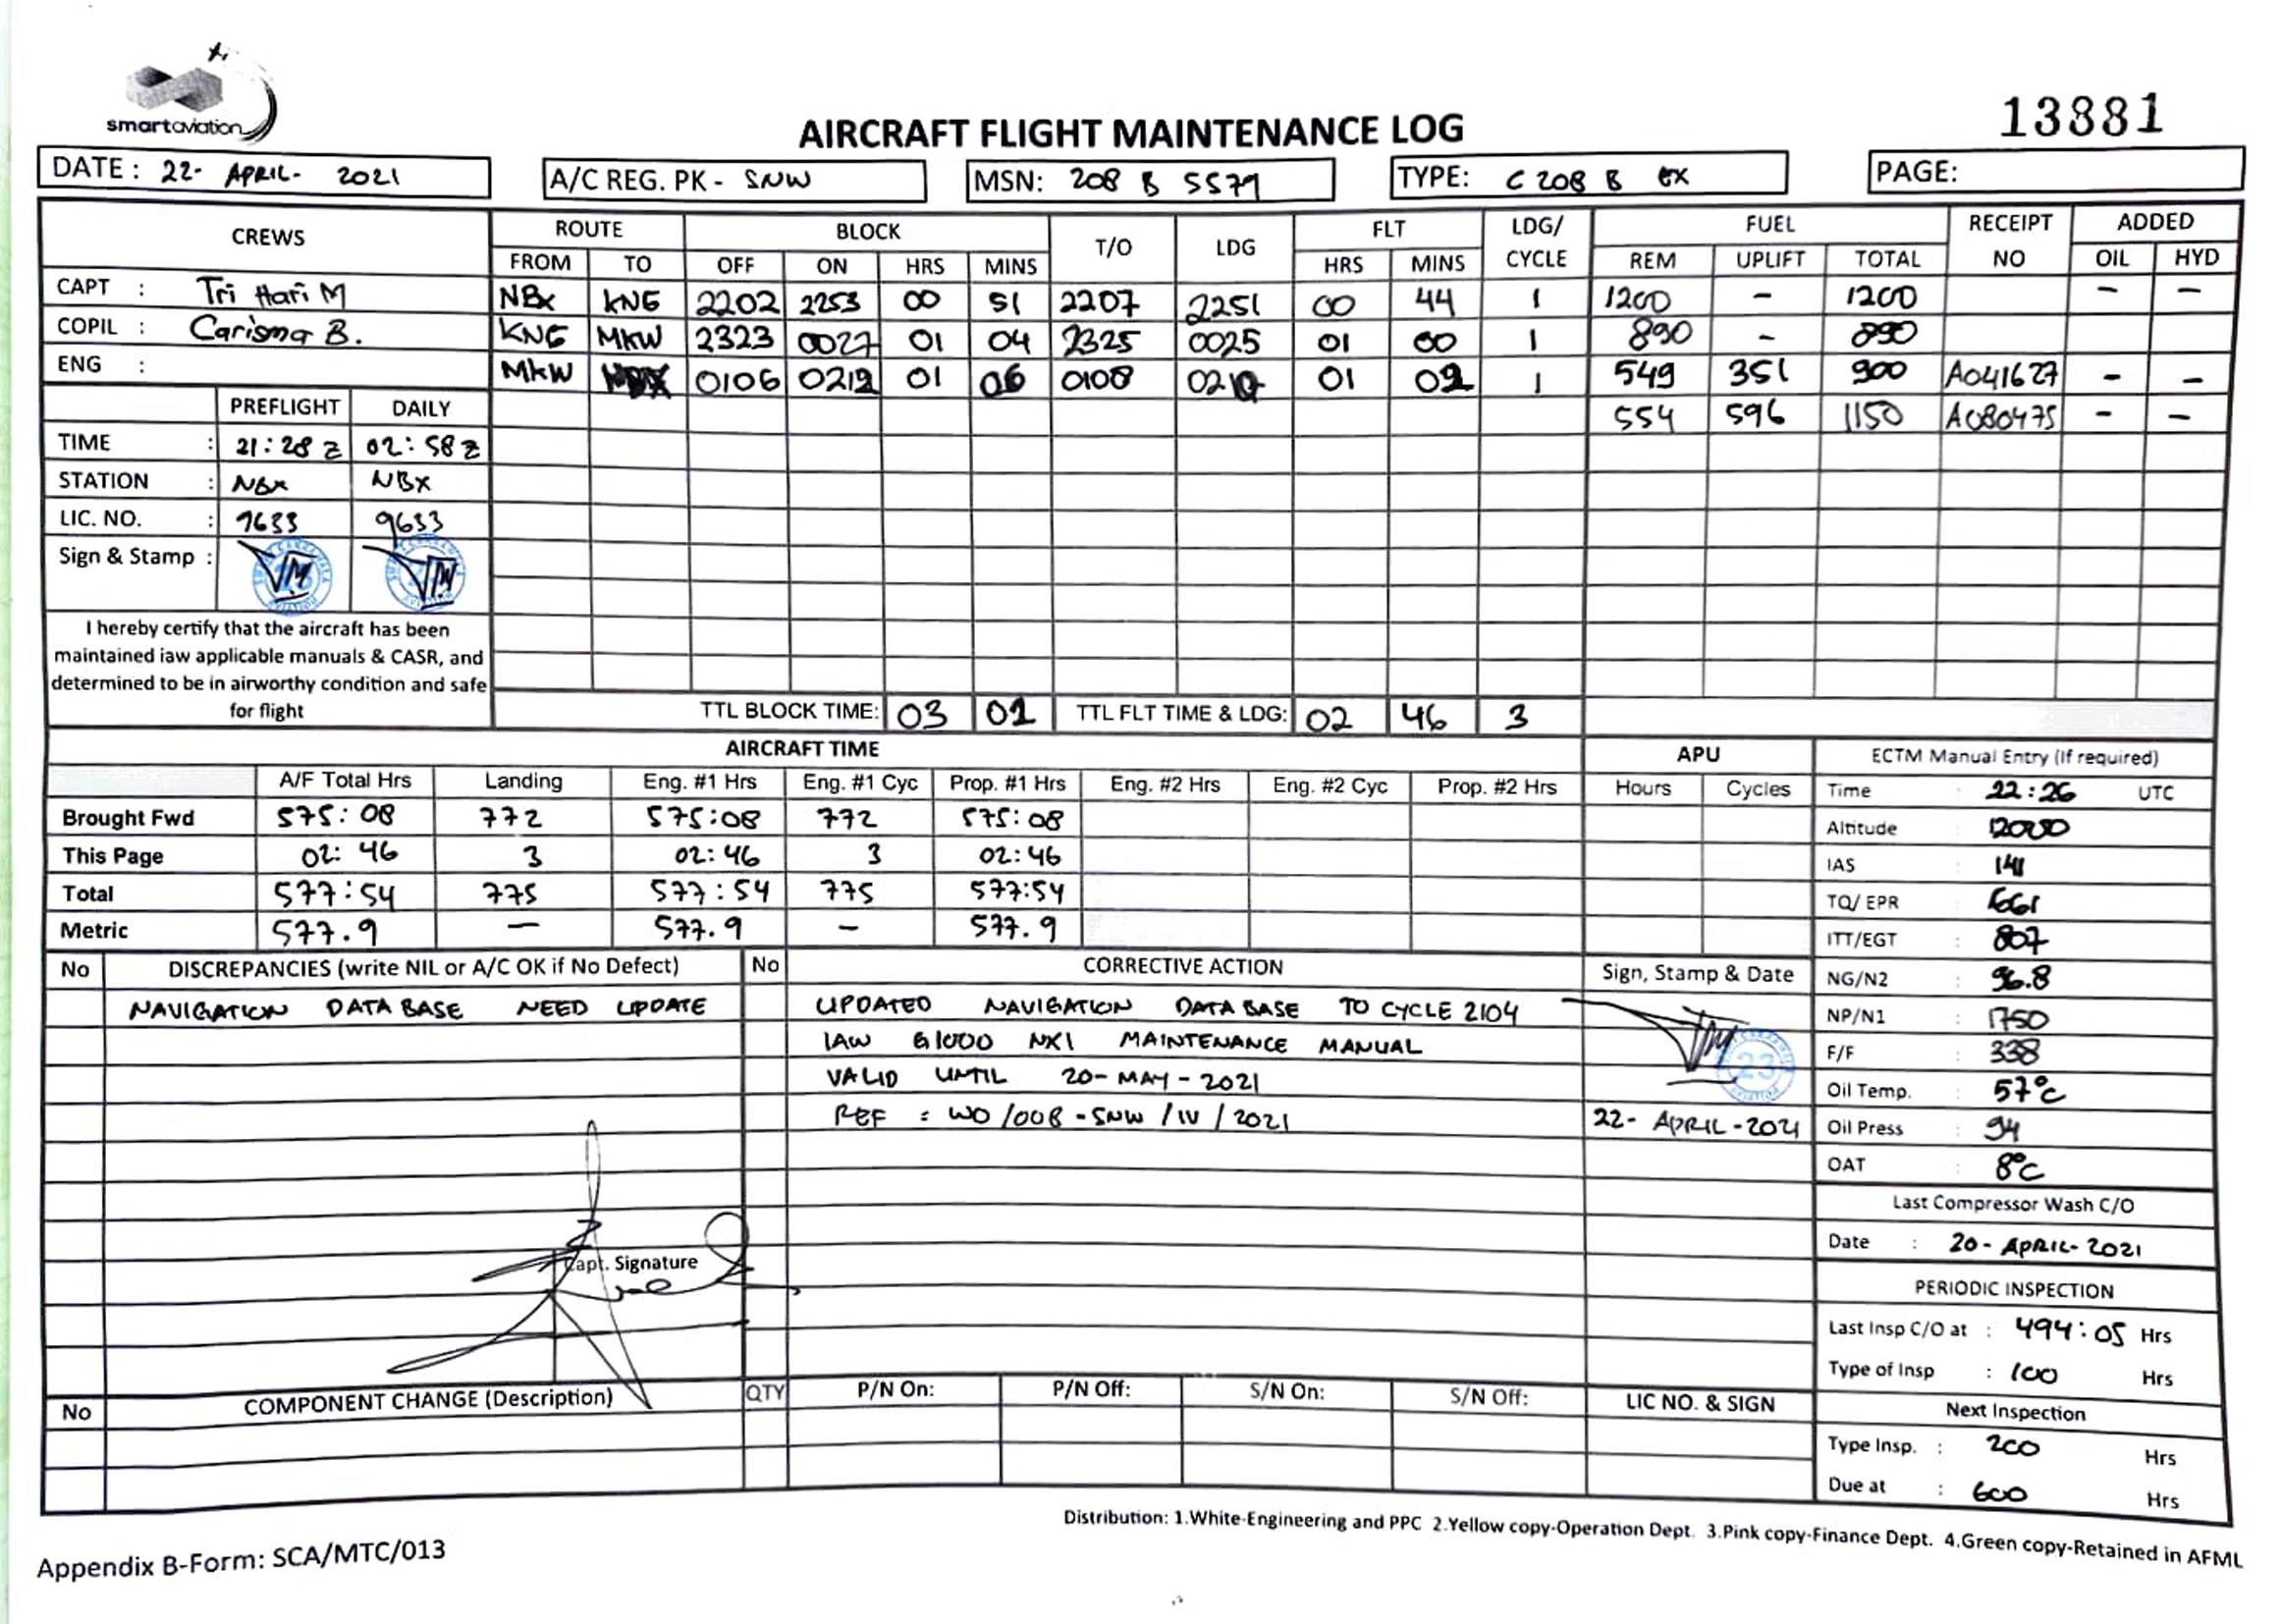 smartaviation
13881
AIRCRAFT FLIGHT MAINTENANCE LOG
DATE : 22- APRIL- 2021
A/C REG. PK - SNW
MSN: 208 B 5579
TYPE: C 208 B EX
PAGE:
CREWS ROUTE BLOCK T/O LDG FLT LDG/ CYCLE FUEL RECEIPT NO ADDED
FROM TO OFF ON HRS MINS HRS MINS REM UPLIFT TOTAL OIL HYD
CAPT : Tri Hari M NBX KNG 2202 2253 00 51 2207 2251 00 44 1 1200 - 1200 - -
COPIL : Carisma B. KNG MKW 2323 0027 01 04 2325 0025 01 00 1 890 - 890
ENG : MKW NBX 0106 0212 01 06 0108 0210 01 02 1 549 351 900 A041627 - -
554 596 1150 A080475 - -
PREFLIGHT DAILY
TIME : 21:28 Z 02:58 Z
STATION : NBX NBX
LIC. NO. : 9633 9633
Sign & Stamp :
I hereby certify that the aircraft has been
maintained iaw applicable manuals & CASR, and
determined to be in airworthy condition and safe
for flight
TTL BLOCK TIME: 03 01 TTL FLT TIME & LDG: 02 46 3
AIRCRAFT TIME
A/F Total Hrs Landing Eng. #1 Hrs Eng. #1 Cyc Prop. #1 Hrs Eng. #2 Hrs Eng. #2 Cyc Prop. #2 Hrs
Brought Fwd 575:08 772 575:08 772 575:08
This Page 02:46 3 02:46 3 02:46
Total 577:54 775 577:54 775 577:54
Metric 577.9 - 577.9 - 577.9
APU
Hours Cycles
ECTM Manual Entry (If required)
Time : 22:26 UTC
Altitude : 12000
IAS : 141
TQ/ EPR : 1661
ITT/EGT : 807
NG/N2 : 96.8
NP/N1 : 1750
F/F : 338
Oil Temp. : 57°C
Oil Press : 94
OAT : 8°C
Last Compressor Wash C/O
Date : 20- APRIL- 2021
PERIODIC INSPECTION
Last Insp C/O at : 494:05 Hrs
Type of Insp : 100 Hrs
Next Inspection
Type Insp. : 200 Hrs
Due at : 600 Hrs
No DISCREPANCIES (write NIL or A/C OK if No Defect) No CORRECTIVE ACTION Sign, Stamp & Date
NAVIGATION DATABASE NEED UPDATE
UPDATED NAVIGATION DATABASE TO CYCLE 2104
IAW G1000 NXI MAINTENANCE MANUAL
VALID UNTIL 20-MAY-2021
REF : WO/008-SNW/IV/2021
23
22- APRIL-2021
Capt. Signature
No COMPONENT CHANGE (Description) QTY P/N On: P/N Off: S/N On: S/N Off: LIC NO. & SIGN
Distribution: 1.White-Engineering and PPC 2.Yellow copy-Operation Dept. 3.Pink copy-Finance Dept. 4.Green copy-Retained in AFML
Appendix B-Form: SCA/MTC/013